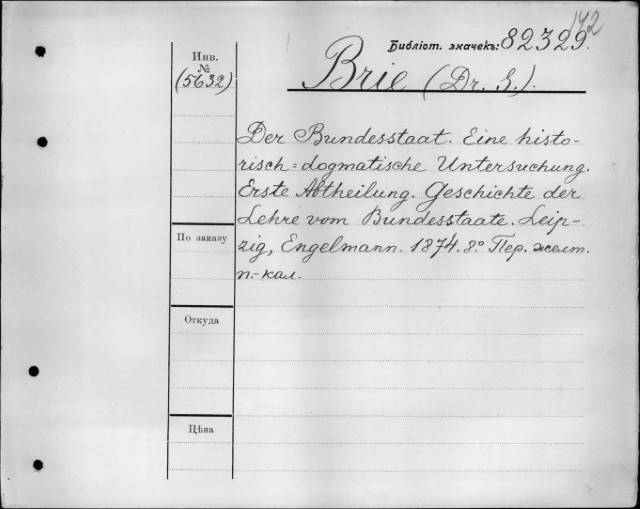 142
Библіот. значекъ: 82329.
Инв.
№
(5632)
Brie (Dr. S.).
Der Bundesstaat. Eine histo-
risch=dogmatische Untersuchung.
Erste Abtheilung. Geschichte der
Lehre vom Bundesstaate. Leip-
zig, Engelmann. 1874. 8° Пер. желт.
п.-кал.
По заказу
Откуда
Цѣна